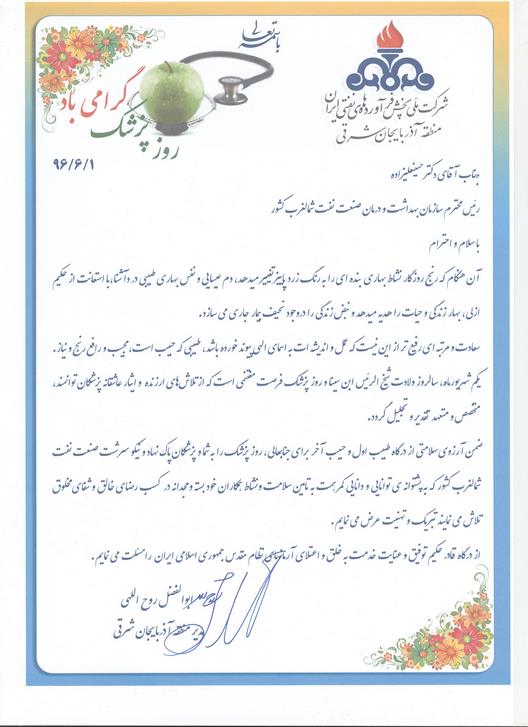 باسمه تعالی
روز پزشک گرامی باد
شرکت ملی پخش فرآورده‌های نفتی ایران
منطقه آذربایجان شرقی
۹۶/۶/۱
جناب آقای دکتر حسینعلیزاده
رئیس محترم سازمان بهداشت و درمان صنعت نفت شمالغرب کشور
با سلام و احترام
آن هنگام که رنج روزگار نشاط بهاری بنده ای را به رنگ زرد پاییز تغییر میدهد، دم عیسایی و نفس بهاری طبیبی درد آشنا، با استعانت از حکیم
ازلی، بهار زندگی و حیات را هدیه میدهد و نبض زندگی را در وجود نحیف بیمار جاری می سازد.
سعادت و مرتبه ای رفیع تر از این نیست که عمل و اندیشه ات به اسمای الهی پیوند خورده باشد، طبیبی که حبیب است، مجیب و رافع رنج و نیاز.
یکم شهریور ماه، سالروز ولادت شیخ الرئیس ابن سینا و روز پزشک فرصت مغتنمی است که از تلاش های ارزنده و ایثار عاشقانه پزشکان توانمند،
متخصص و متعهد تقدیر و تجلیل گردد.
ضمن آرزوی سلامتی از درگاه طبیب اول و حبیب آخر برای جنابعالی، روز پزشک را به شما و پزشکان پاک نهاد و نیکو سرشت صنعت نفت
شمالغرب کشور که به پشتوانه ی توانایی و دانایی کمر همت به تامین سلامت و نشاط همکاران خود بسته و مجدانه در کسب رضای خالق و شفای مخلوق
تلاش می نمایند تبریک و تهنیت عرض می نمایم.
از درگاه قادر حکیم توفیق و عنایت خدمت به خلق و اعتلای آرمانهای نظام مقدس جمهوری اسلامی ایران را مسئلت می نمایم.
ابوالفضل روح اللهی
مدیر منطقه آذربایجان شرقی